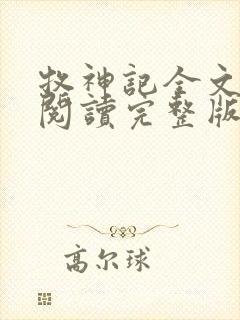 牧神記全文
閱讀完整版
高尔球